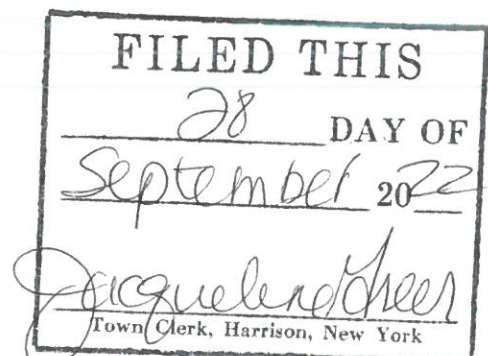 FILED THIS
28 DAY OF
September 2022
Jacqueline Greer
Town Clerk, Harrison, New York